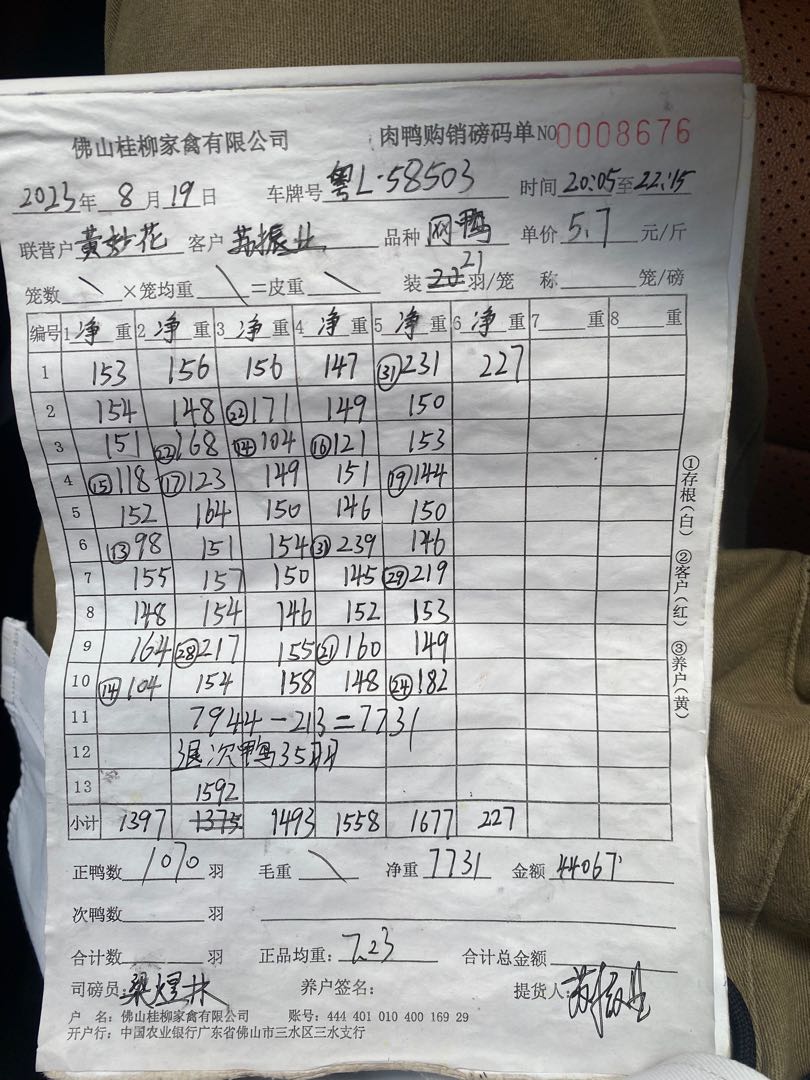 佛山桂柳家禽有限公司 肉鸭购销磅码单 NO 0008676
2023年 8月19日 车牌号 粤L·58503 时间 20:05至22:15
联营户 黄妙花 客户 苏振业 品种 网鸭 单价 5.7 元/斤
笼数 \ ×笼均重 \ =皮重 \ 装 21 羽/笼 称 笼/磅
编号 1 净 重 2 净 重 3 净 重 4 净 重 5 净 重 6 净 重 7 重 8 重
1 153 156 156 147 ㉛231 227
2 154 148 ㉒171 149 150
3 151 ㉒168 ⑭104 ⑯121 153
4 ⑮118 ⑰123 149 151 ⑲144
5 152 164 150 146 150
6 ⑬98 151 154 ㉛239 146
7 155 157 150 145 ㉙219
8 148 154 146 152 153
9 164 ㉘217 155 ㉑160 149
10 ⑭104 154 158 148 ㉔182
11 7944-213=7731
12 退次鸭35羽
13 1592
小计 1397 1375 1493 1558 1677 227
正鸭数 1070 羽 毛重 \ 净重 7731 金额 44067
次鸭数 羽
合计数 羽 正品均重: 7.23 合计总金额
司磅员: 梁煜林 养户签名: 提货人: 苏振业
户 名: 佛山桂柳家禽有限公司 账号: 444 401 010 400 169 29
开户行: 中国农业银行广东省佛山市三水区三水支行
①存根(白) ②客户(红) ③养户(黄)